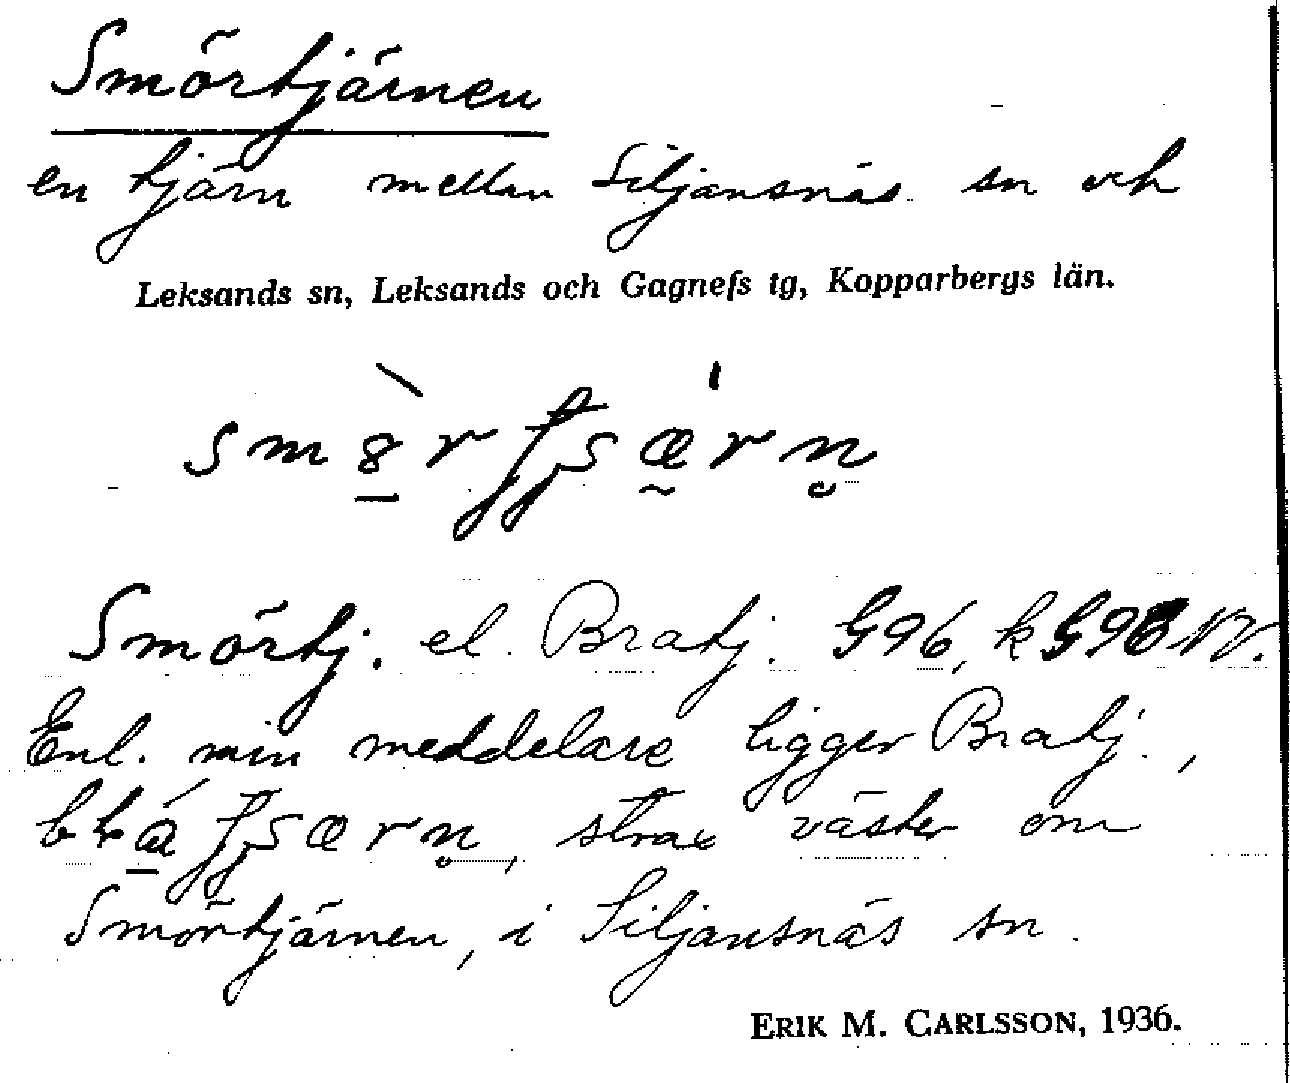 Smörtjärnen
en tjärn mellan Siljansnäs sn och
Leksands sn, Leksands och Gagnefs tg, Kopparbergs län.
Smörtj. el. Bratj. G96, k G96 NV.
Enl. min meddelare ligger Bratj.,
strax väster om
Smörtjärnen, i Siljansnäs sn.
ERIK M. CARLSSON, 1936.